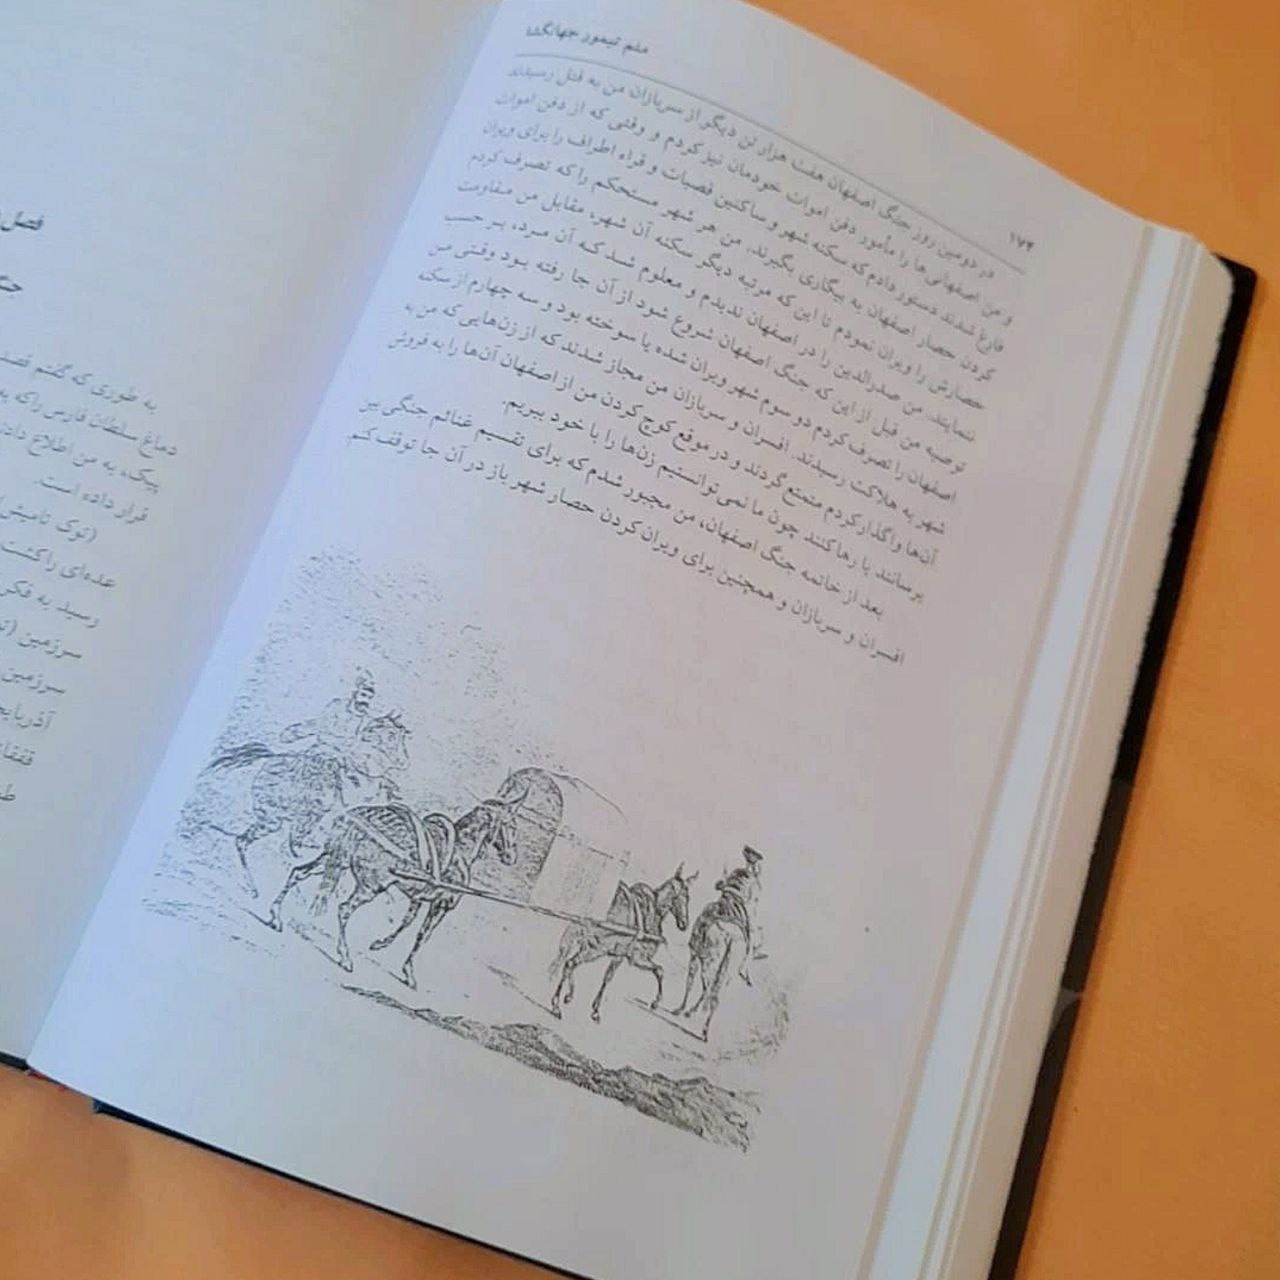 منم تیمور جهانگشا
۱۷۴
در دومین روز جنگ اصفهان هفت هزار تن دیگر از سربازان من به قتل رسیدند
و من اصفهانی‌ها را مأمور دفن اموات خودمان نیز کردم و وقتی که از دفن اموات
فارغ شدند دستور دادم که سکنه شهر و ساکنین قصبات و قراء اطراف را برای ویران
کردن حصار اصفهان به بیگاری بگیرند. من هر شهر مستحکم را که تصرف کردم
حصارش را ویران نمودم تا این که مرتبه دیگر سکنه آن شهر، مقابل من مقاومت
ننمایند. من صدرالدین را در اصفهان ندیدم و معلوم شد که آن مرد، بر حسب
توصیه من قبل از این که جنگ اصفهان شروع شود از آن جا رفته بود وقتی من
اصفهان را تصرف کردم دو سوم شهر ویران شده یا سوخته بود و سه چهارم از سکنه
شهر به هلاکت رسیدند. افسران و سربازان من مجاز شدند که از زن‌هایی که من به
آن‌ها واگذار کردم متمتع گردند و در موقع کوچ کردن من از اصفهان آن‌ها را به فروش
برسانند یا رها کنند چون ما نمی‌توانستیم زن‌ها را با خود ببریم.
بعد از خاتمه جنگ اصفهان، من مجبور شدم که برای تقسیم غنائم جنگی بین
افسران و سربازان و همچنین برای ویران کردن حصار شهر باز در آن جا توقف کنم.
فصل
به طوری که گفتم قصد
دماغ سلطان فارس را که به
پیک، به من اطلاع داد
قرار داده است.
(توک تامیش
عده‌ای را کشت
رسید به فکر
سرزمین
سرزمین